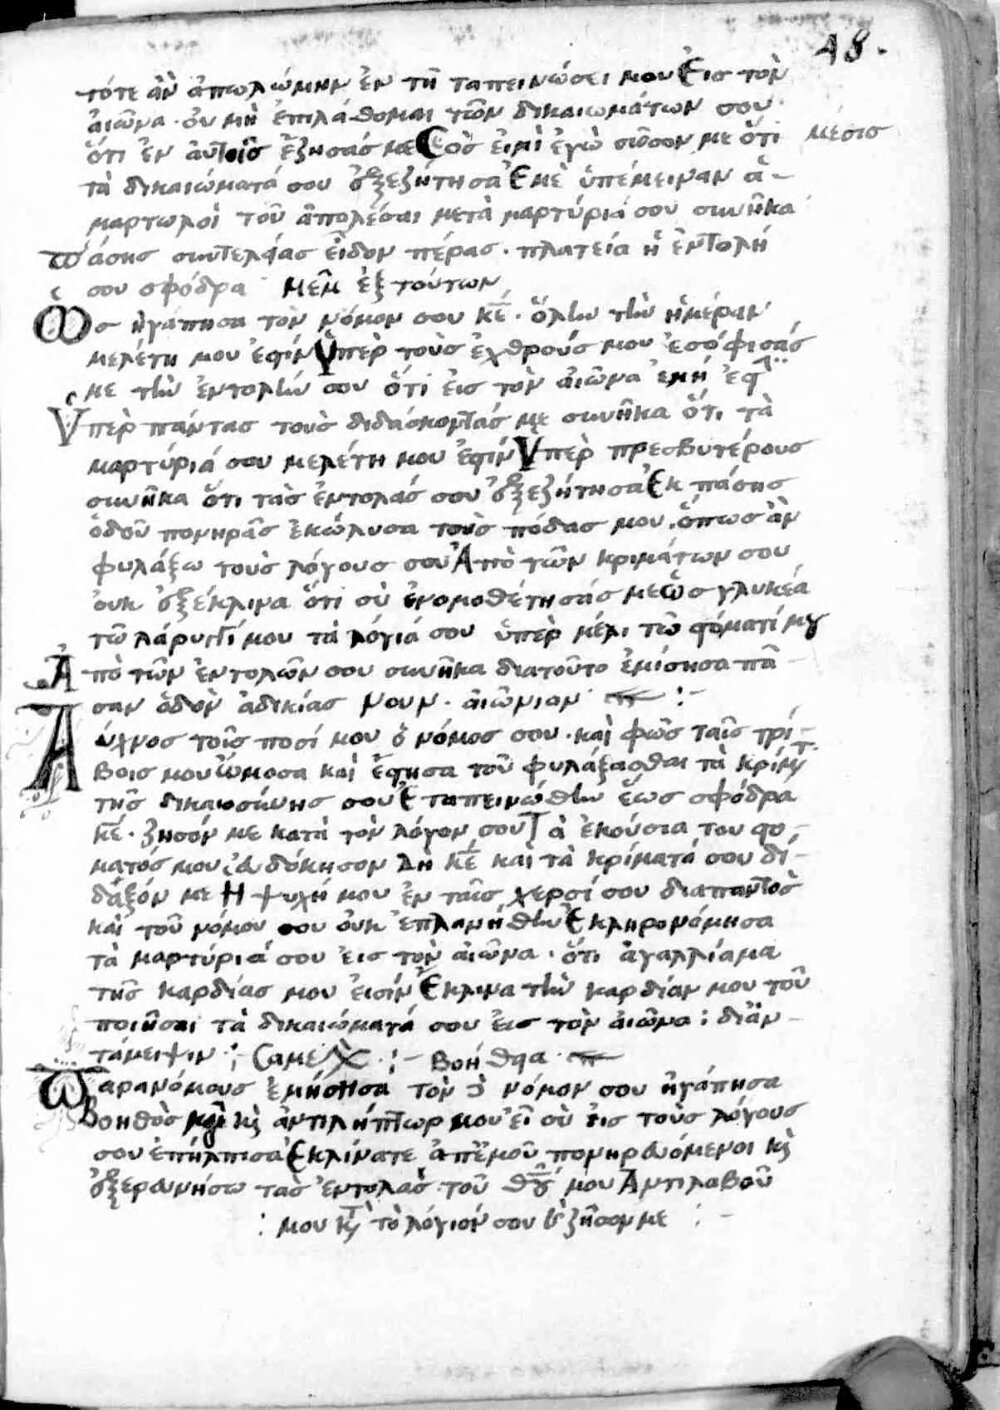 48.
τότε ἂν ἀπωλώμην ἐν τῇ ταπεινώσει μου Εἰς τὸν
αἰῶνα · οὐ μὴ ἐπιλάθομαι τῶν δικαιωμάτων σου ·
ὅτι ἐν αὐτοῖς ἔζησάς με Σός εἰμὶ ἐγὼ σῶσον με ὅτι μέσις
τὰ δικαιώματά σου ἐξεζήτησα Ἐμὲ ὑπέμειναν ἁ-
μαρτωλοὶ τοῦ ἀπολέσαι με τὰ μαρτύριά σου συνῆκα
πάσης συντελείας εἶδον πέρας · πλατεία ἡ ἐντολή
σου σφόδρα μὲμ ἐξ τούτων
Ὡς ἠγάπησα τὸν νόμον σου κε · ὅλην τὴν ἡμέραν
μελέτη μου ἐστίν Ὑπὲρ τοὺς ἐχθρούς μου ἐσόφισάς
με τὴν ἐντολήν σου ὅτι εἰς τὸν αἰῶνα ἐμή ἐστ
Ὑπὲρ πάντας τοὺς διδάσκοντάς με συνῆκα ὅτι τὰ
μαρτύριά σου μελέτη μου ἐστίν Ὑπὲρ πρεσβυτέρους
συνῆκα ὅτι τὰς ἐντολάς σου ἐξεζήτησα Ἐκ πάσης
ὁδοῦ πονηρᾶς ἐκώλυσα τοὺς πόδας μου · ὅπως ἂν
φυλάξω τοὺς λόγους σου Ἀπὸ τῶν κριμάτων σου
οὐκ ἐξέκλινα ὅτι σὺ ἐνομοθέτησάς με Ὡς γλυκέα
τῶ λάρυγγί μου τὰ λόγιά σου ὑπὲρ μέλι τῶ στόματί μου
Ἀπὸ τῶν ἐντολῶν σου συνῆκα διατοῦτο ἐμίσησα πᾶ-
σαν ὁδὸν ἀδικίας νουν · αἰώνιον :-
Λύχνος τοῖς ποσί μου ὁ νόμος σου · καὶ φῶς ταῖς τρί-
βοις μου Ὤμοσα καὶ ἔστησα τοῦ φυλάξασθαι τὰ κρίμτ
τῆς δικαιοσύνης σου Ἐταπεινώθην ἕως σφόδρα
κε · ζησόν με κατὰ τὸν λόγον σου Τὰ ἑκούσια του στό-
ματός μου εὐδόκησον δὴ κε καὶ τὰ κρίματά σου δί-
δαξόν με Ἡ ψυχή μου ἐν ταῖς χερσί σου διαπαντὸς
καὶ τοῦ νόμου σου οὐκ ἐπλανήθην Ἐκληρονόμησα
τὰ μαρτύριά σου εἰς τὸν αἰῶνα · ὅτι ἀγαλλίαμα
τῆς καρδίας μου εἰσίν Ἔκλινα τὴν καρδίαν μου τοῦ
ποιῆσαι τὰ δικαιώματά σου εἰς τὸν αἰῶνα : διἂν-
τάμειψιν :- Σαμεχ :- Βοήθεια
Παρανόμους ἐμήσησα τὸν δὲ νόμον σου ἠγάπησα
Βοηθὸς μου κὶ ἀντιλήπτωρ μου εἶ σὺ εἰς τοὺς λόγους
σου ἐπήλπισα Ἐκλίνατε ἀπ' ἐμοῦ πονηρευόμενοι κὶ
ἐξερευνήσω τὰς ἐντολὰς τοῦ θυ μου Ἀντιλαβοῦ
: μου κτ τὸ λόγιόν σου κὶ ζῆσον με :-